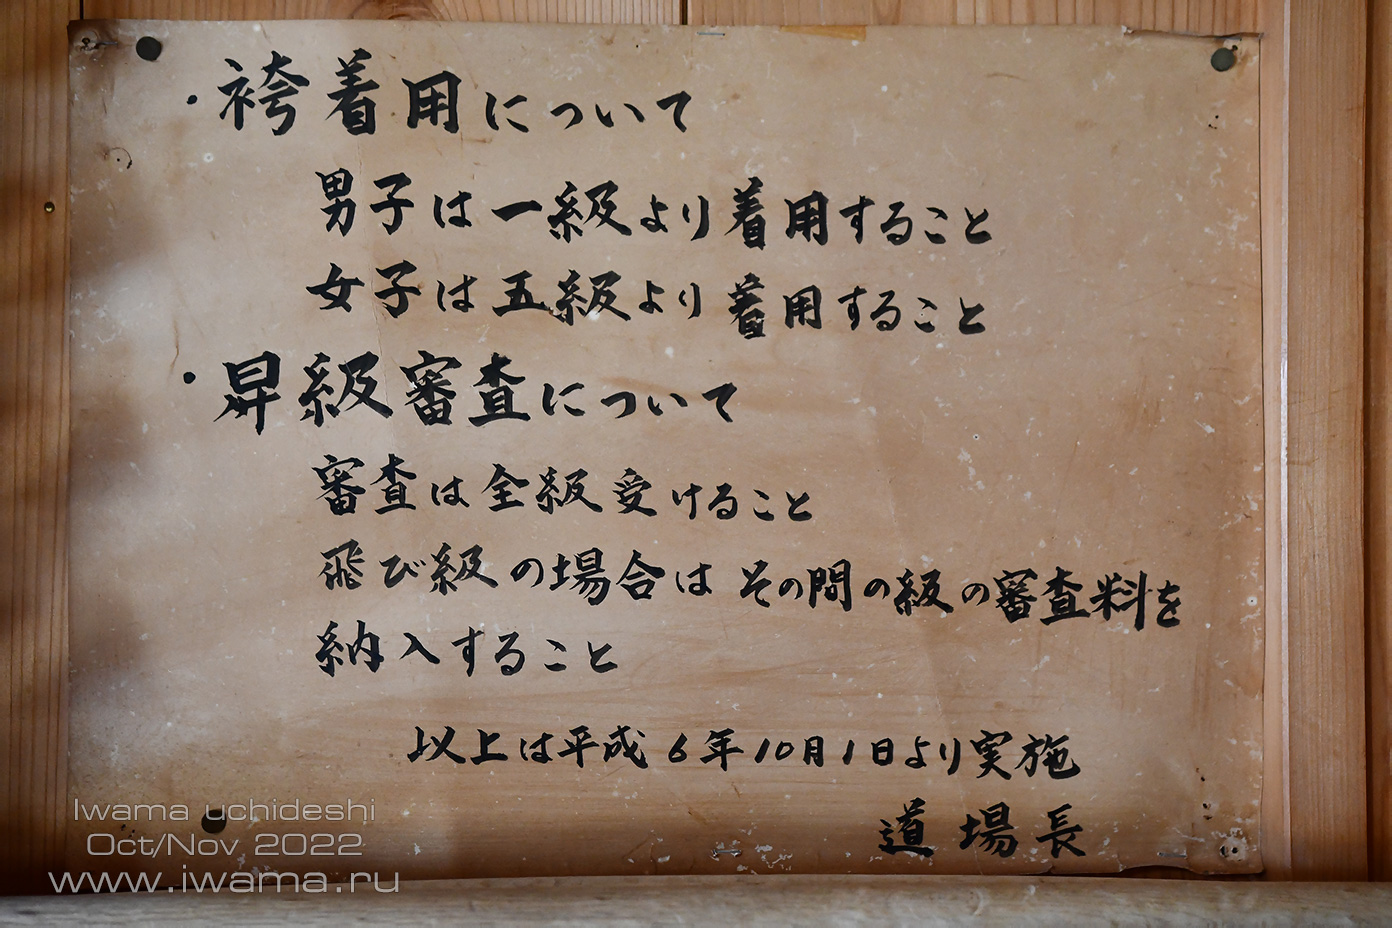 ・袴着用について
男子は一級より着用すること
女子は五級より着用すること
・昇級審査について
審査は全級受けること
飛び級の場合はその間の級の審査料を
納入すること
以上は平成6年10月1日より実施
道場長
Iwama uchideshi
Oct/Nov 2022
www.iwama.ru